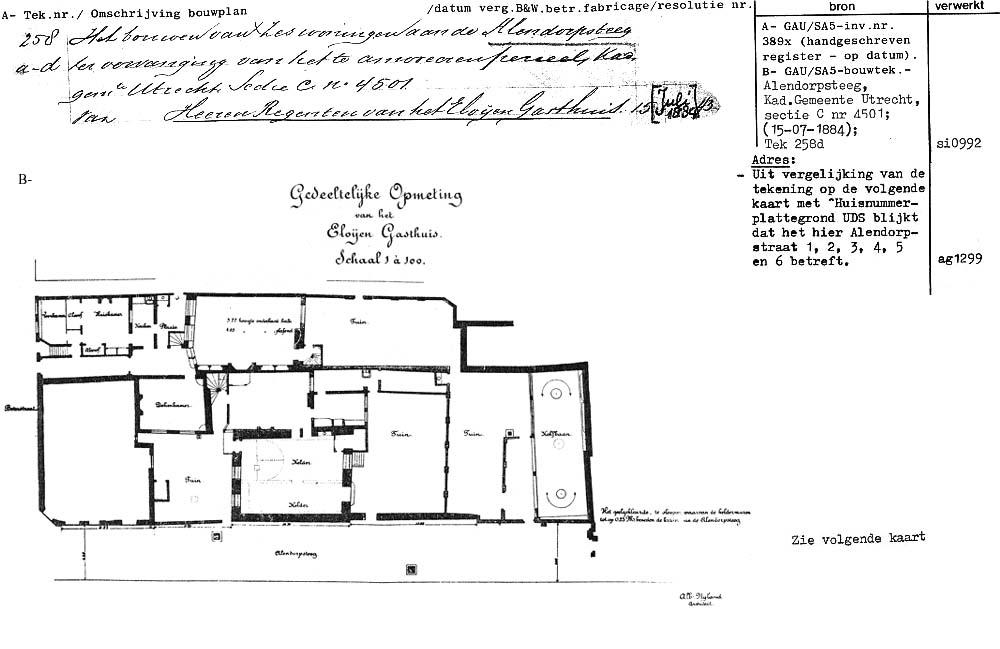 A- Tek.nr./ Omschrijving bouwplan
/datum verg.B&W.betr.fabricage/resolutie nr.
bron
verwerkt
258 Het bouwen van zes woningen aan de Alendorpsteeg
a-d ter vervanging van het te amoveeren perceel, Kad.
gem.te Utrecht Sectie C. no. 4501.
van Heeren Regenten van het Eloijen Gasthuis. 15 [Juli 1884]
A- GAU/SA5-inv.nr.
389x (handgeschreven
register - op datum).
B- GAU/SA5-bouwtek.-
Alendorpsteeg,
Kad.Gemeente Utrecht,
sectie C nr 4501;
(15-07-1884);
Tek 258d
si0992
Adres:
- Uit vergelijking van de
tekening op de volgende
kaart met "Huisnummer-
plattegrond UDS blijkt
dat het hier Alendorp-
straat 1, 2, 3, 4, 5
en 6 betreft.
ag1299
B-
Gedeeltelijke Opmeting
van het
Eloijen Gasthuis.
Schaal 1 à 100.
Voorkamer
Alcoof
Huiskamer
Keuken
Plaats
Alcoof
Tuin
Boterstraat
Bakenkamer
Tuin
Kelder
Kelder
Tuin
Tuin
Kolfbaan
Alendorpsteeg
Zie volgende kaart
Alb. Nyland
Architect